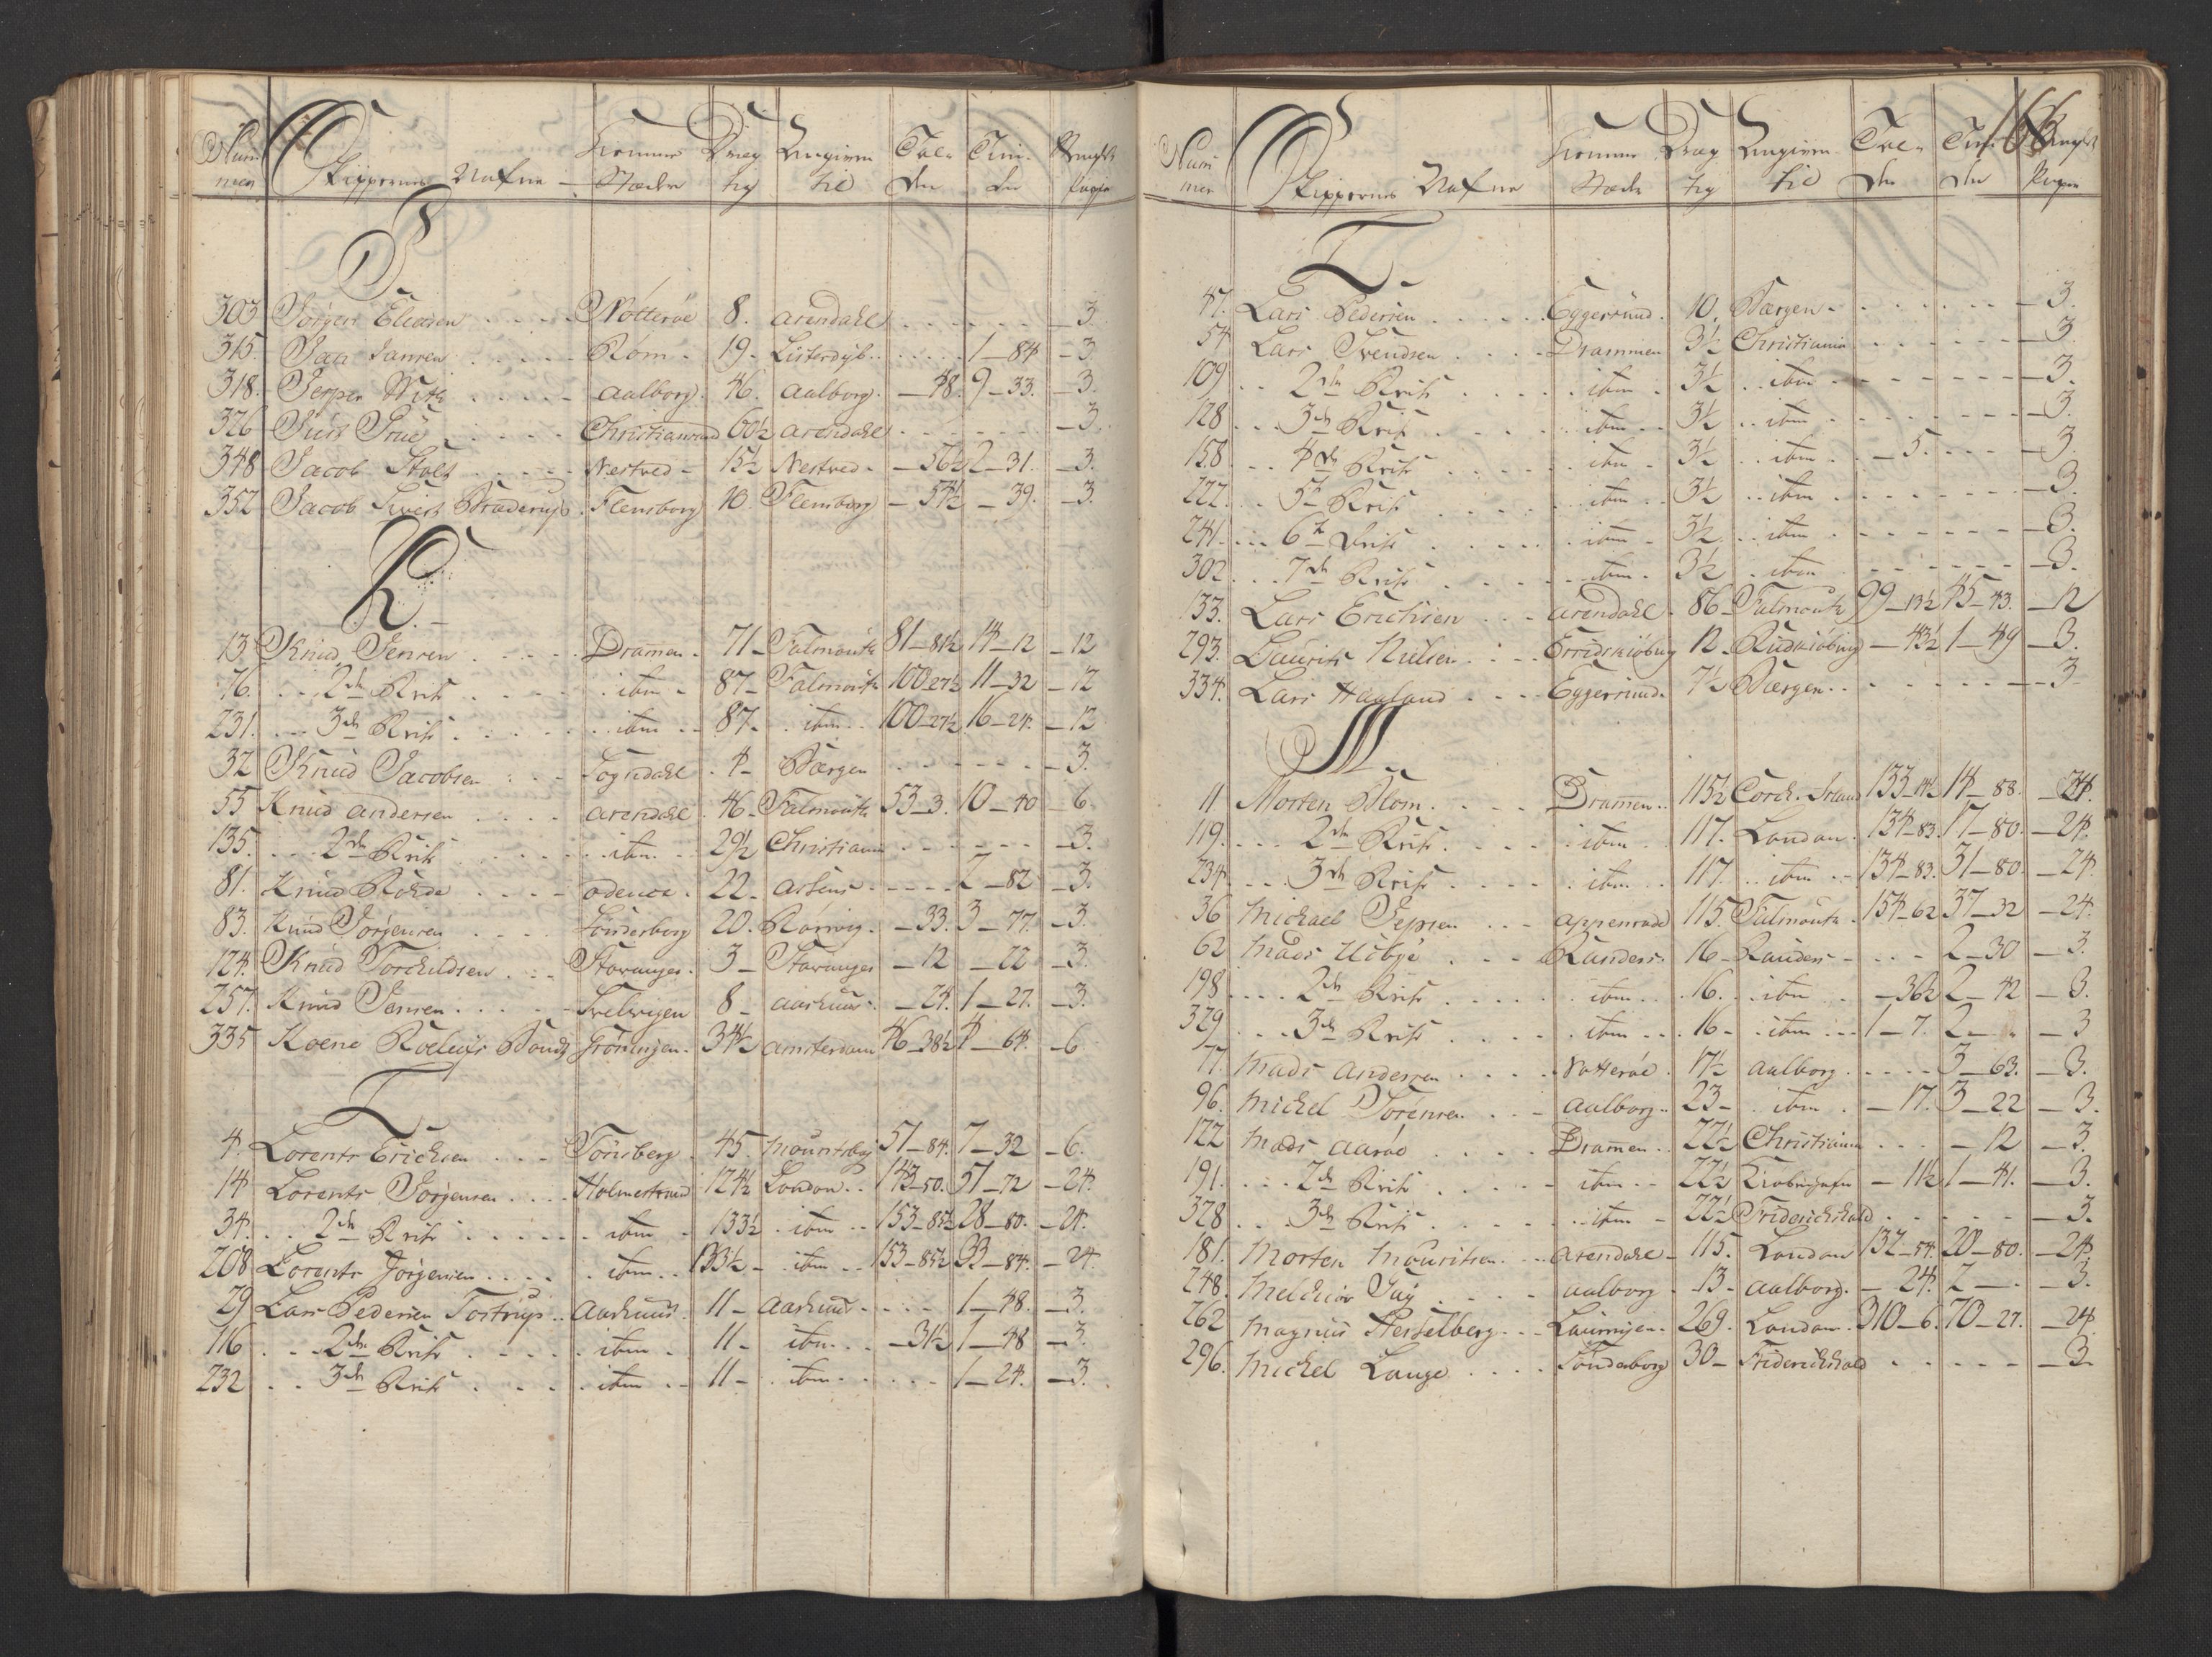 Num̅ Skippernes Nafne Hiemme Dræg Angiven Tol- Tien-
mer Stæder tig til den den
J.
303 Jørgen Eliasen Nøtterøe 8. Arendahl 3.
315. Jan Jansen Røm 19. Listerdÿb 1_84 3.
318. Jesper With Aalborg 46. Aalborg 48. 9_33. 3.
326 Christiansand 60½ Arendahl 3.
348 Jacob Nestved 15½ Nestved 56½ 2_31. 3.
352 Jacob Flensborg 10. Flensborg 54½ 39. 3.
K.
13 Knud Jensen Dramen 71 Falmouth 81_81½ 14_12 12
76. 2den Reise ibm 87 Falmouth 100_27½ 11_32 12
231. 3de Reise ibm 87 ibm 100_27½ 16_24. 12
32 Knud Jacobsen Sogndahl 4 Bergen 3.
55 Knud Andersen Arendahl 46 Falmouth 53_3. 10_40 6.
135. 2den Reise ibm 29½ Christiania 3.
81. Knud Rohde Odense 22. Assens 2_82 3.
83. Knud Jørgensen Sønderborg 20. Rørvig 33. 3_77. 3.
124. Knud Torchildsen Stavanger 3 Stavanger 12 22 3.
257. Knud Jansen Svelvigen 8 Aarhuus 24. 1_27. 3.
335 Koene Roelufs Grøningen 34½ Amsterdam 46_38½ 4_64. 6
L
4. Lorents Erichsen Tønsberg 45. 51_84. 7_32 6.
14 Lorents Jørgensen Holmestrand 124½ London 143_50. 51_72 24.
34. 2den Reise ibm 133½ ibm 153_85½ 28_80. 24.
208 Lorents Jørgensen ibm 133½ ibm 153_85½ 33_84. 24.
29 Lars Pedersen Tostrup Aarhuus 11 Aarhuus 1_48. 3.
116 2den Reise ibm 11 ibm 31½ 1_48 3.
232 3de Reise ibm 11 ibm 1_24. 3.
166
Num̅ Skippernes Nafne Hiemme Dræg Angiven Tol- Tien-
mer Stæder tig til den den
L
47. Lars Pedersen Eggersund 10. Bergen 3.
54 Lars Svendsen Drammen 3½ Christiania 3.
109 2den Reise ibm 3½ ibm 3.
128 3de Reise ibm 3½ ibm 3.
158 4de Reise ibm 3½ ibm 5. 3.
222 5te Reise ibm 3½ ibm 3.
241 6te Reise ibm 3½ ibm 3.
302 7de Reise ibm 3½ ibm 3.
133. Lars Erichsen Arendahl 86 Falmouth 99_13½ 45_43. 12
293. Laurits Nielsen Erridskiøbing 12 Rudkiøbing 43½ 1_49 3.
334. Lars Haaland Eggersund 7½ Bergen 3
M.
11. Morten Blom Dramen 115½ Corck. Irland 133_14½ 14_88. 24.
119. 2den Reise ibm 117. London 134_83. 17_80. 24.
234. 3de Reise ibm 117. ibm 134_83. 31_80. 24.
36 Michael Jepsen Appenrade 115. Falmouth 154_62 37_32 24.
62 Mads Uldbye Randers 16 Randers 2_30 3.
198 2den Reise ibm 16. ibm 36½ 2_42 3.
329 3de Reise ibm 16 ibm 1_7. 2 3
77. Mads Andersen Nøtterøe 17½ Aalborg 3_63. 3.
96. Michel Sørensen Aalborg 23 ibm 17. 3_22 3.
122 Mads Aarøe Dramen 22½ Christiania 12 3.
191. 2den Reise ibm 22½ Kiøbenhafn 11½ 1_41. 3.
328 3de Reise ibm 22½ Friderichshald 3.
181. Morten Mouritsen Arendahl 115. London 132_54. 20_80. 24.
248. Melchior Aalborg 13 Aalborg 24. 2 3.
262 Magnus Hesselberg Laurvigen 269. London 310_6. 70_27. 24
296. Michel Lange Sønderborg 30 Friderichshald 3.